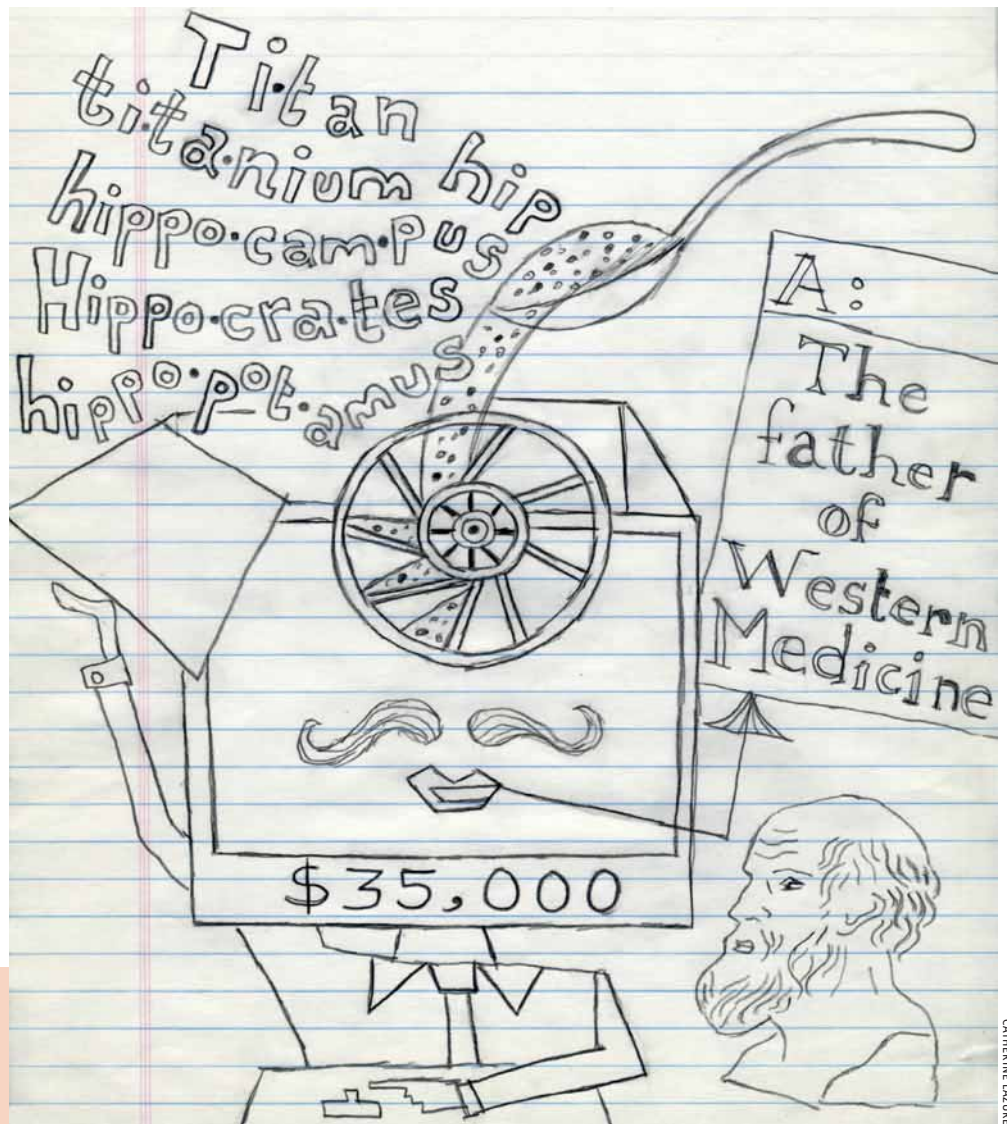 Ti·tan
ti·ta·nium hip
hippo·cam·pus
Hippo·cra·tes
hippo·pot·amus
A:
The
father
of
Western
Medicine
$35,000
CATHERINE LAZURE